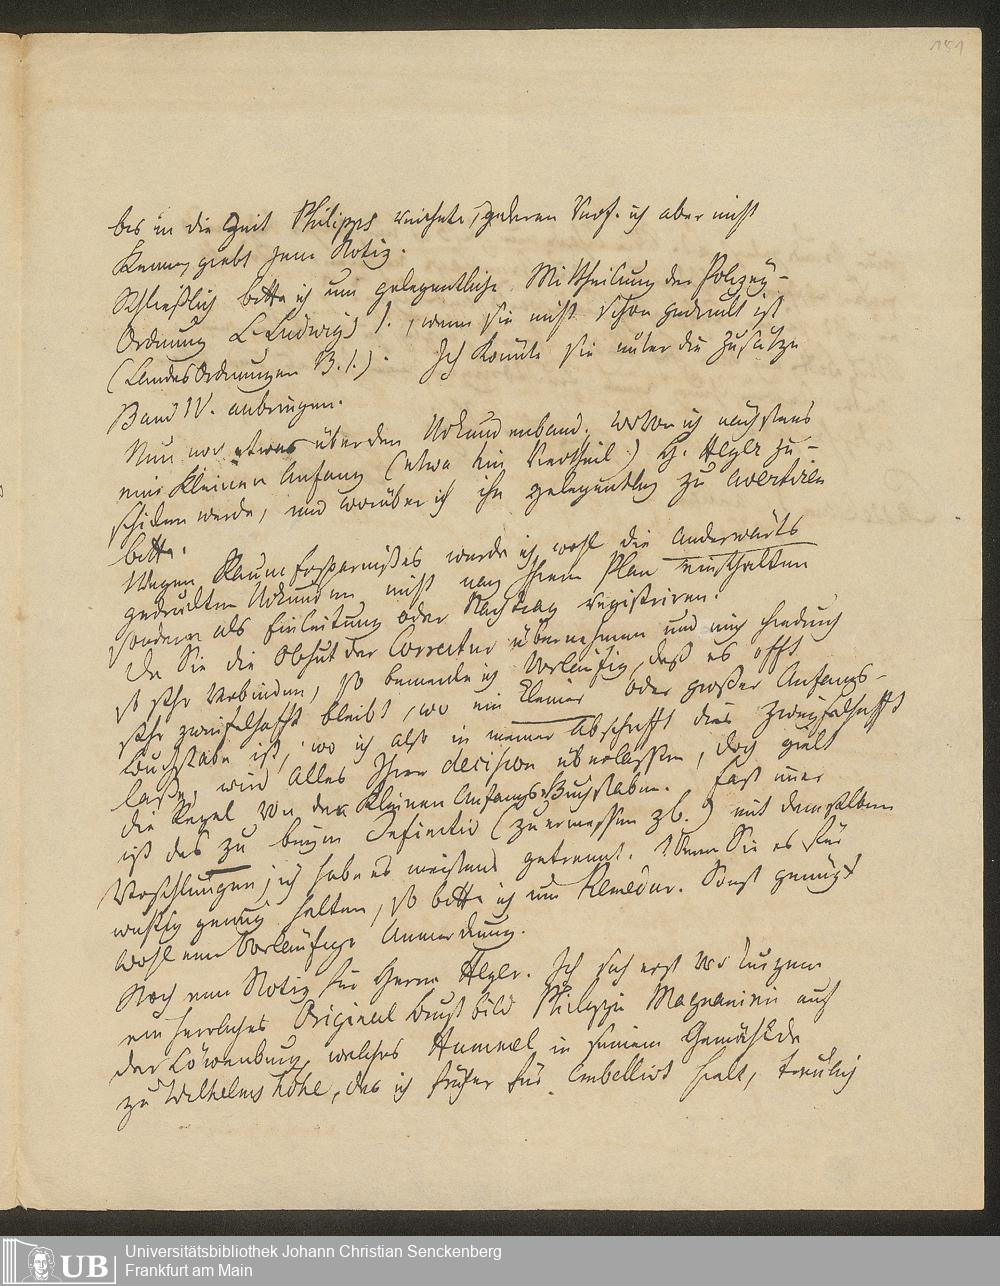 151
bis in die Zeit Philipps reichete, deren Verf. ich aber nicht
kenne, giebt jene Notiz.
Schließlich bitte ich um gelegentliche Mittheilung der Polizey-
Ordnung L. Ludwigs I., wenn sie nicht schon gedruckt ist
(LandesOrdnungen B. I.). Ich könnte sie unter die Zusätze
Band IV. anbringen.
Nun noch etwas über den Urkundenband, wovon ich nächstens
einen kleinen Anfang (etwa ein Viertheil) H. Heyer zu-
schicken werde, und worüber ich ihn gelegentlich zu avertiren
bitte.
Wegen Raum Ersparnißes werde ich wohl die anderwärts
gedruckten Urkunden nicht nach Ihrem Plan einschalten
sondern als Einleitung oder Nachtrag registriren.
Da Sie die Obhut der Correctur übernehmen und mich hiedurch
so sehr verbinden, so bemerke ich vorläufig, daß es offt
sehr zweifelhafft bleibt, wo ein kleiner oder großer Anfangs-
buchstabe ist; wo ich also in meiner Abschrifft dies zweifelhafft
laße, wird alles Ihrer decision überlassen, doch gielt
die Regel von den kleinen Anfangs-Buchstaben. Fast immer
ist das zu beym Infinitiv (zuermessen zb.) mit demselben
verschlungen; ich habe es meistens getrennt. Wenn Sie es für
wichtig genug halten, so bitte ich um Remedur. Sonst genügt
wohl eine vorläufige Anmerkung.
Noch eine Notiz für Herrn Heyer. Ich sah erst vor kurzem
ein herrliches Original Brustbild Philippi Magnanimi auf
der Löwenburg, welches Hummel in seinem Gemählde
zu Wilhelmshöhe, das ich früher für embellirt hielt, treulich
Universitätsbibliothek Johann Christian Senckenberg
Frankfurt am Main
UB